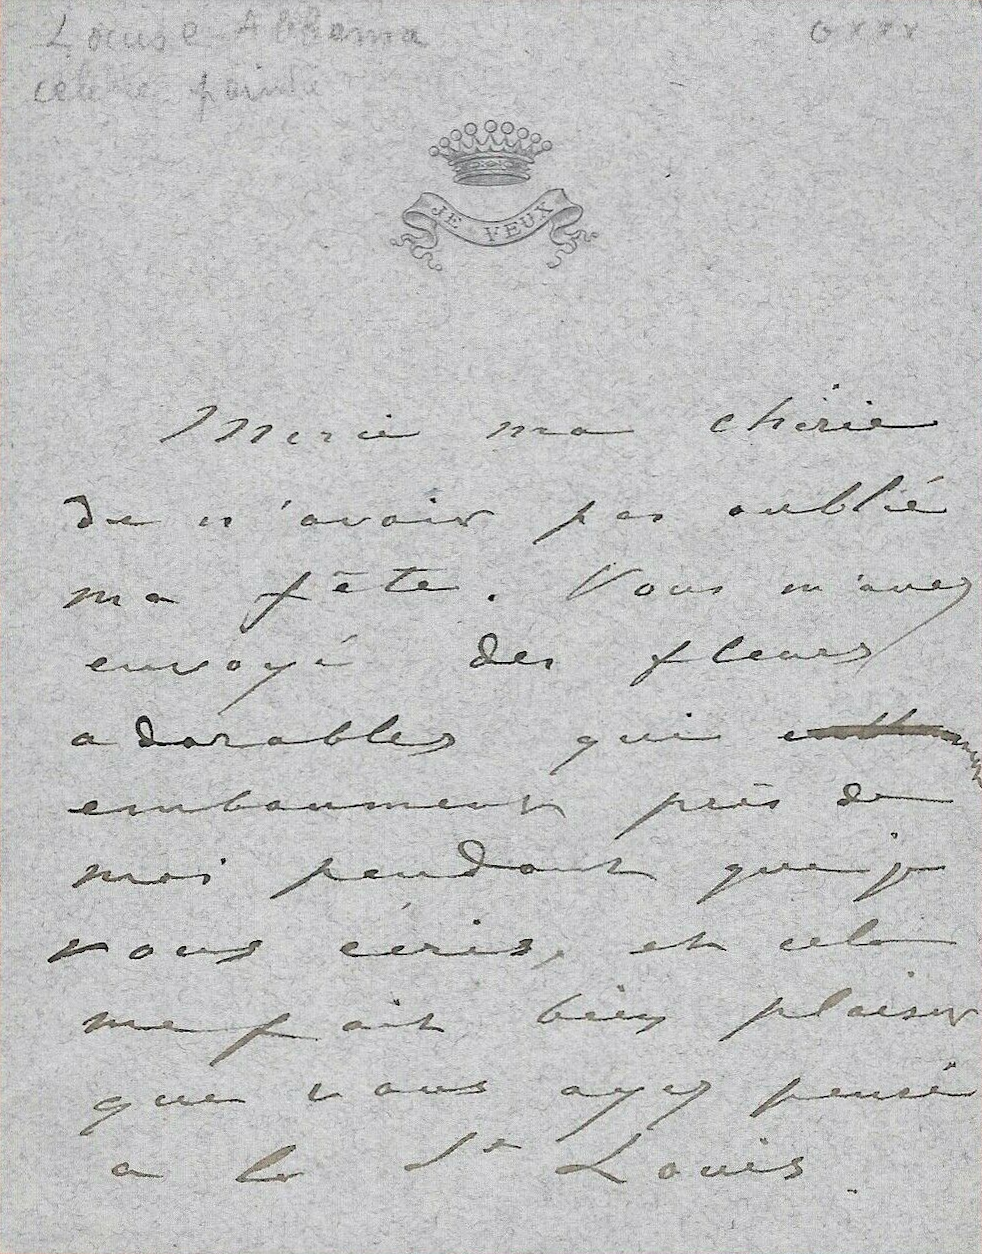 Louise Abbema
célèbre peintre
JE VEUX
Merci ma chérie
de n'avoir pas oublié
ma fête. Vous m'avez
envoyé des fleurs
adorables qui
embaument près de
moi pendant que je
vous écris, et cela
me fait bien plaisir
que vous ayez pensé
a la St Louis.